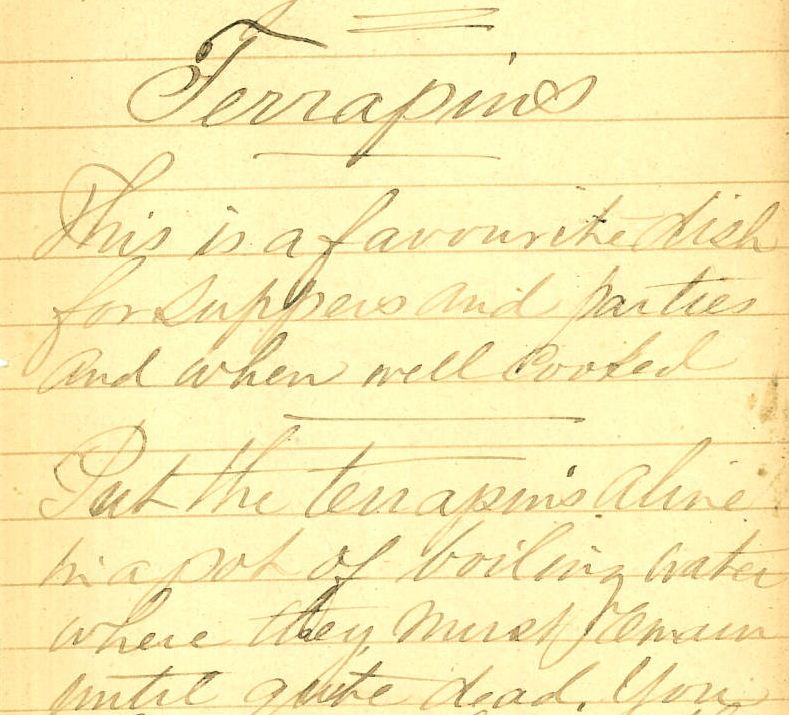 Terrapins
This is a favourite dish
for suppers and parties
and when well cooked
Put the terrapins alive
in a pot of boiling water
where they must remain
until quite dead. You